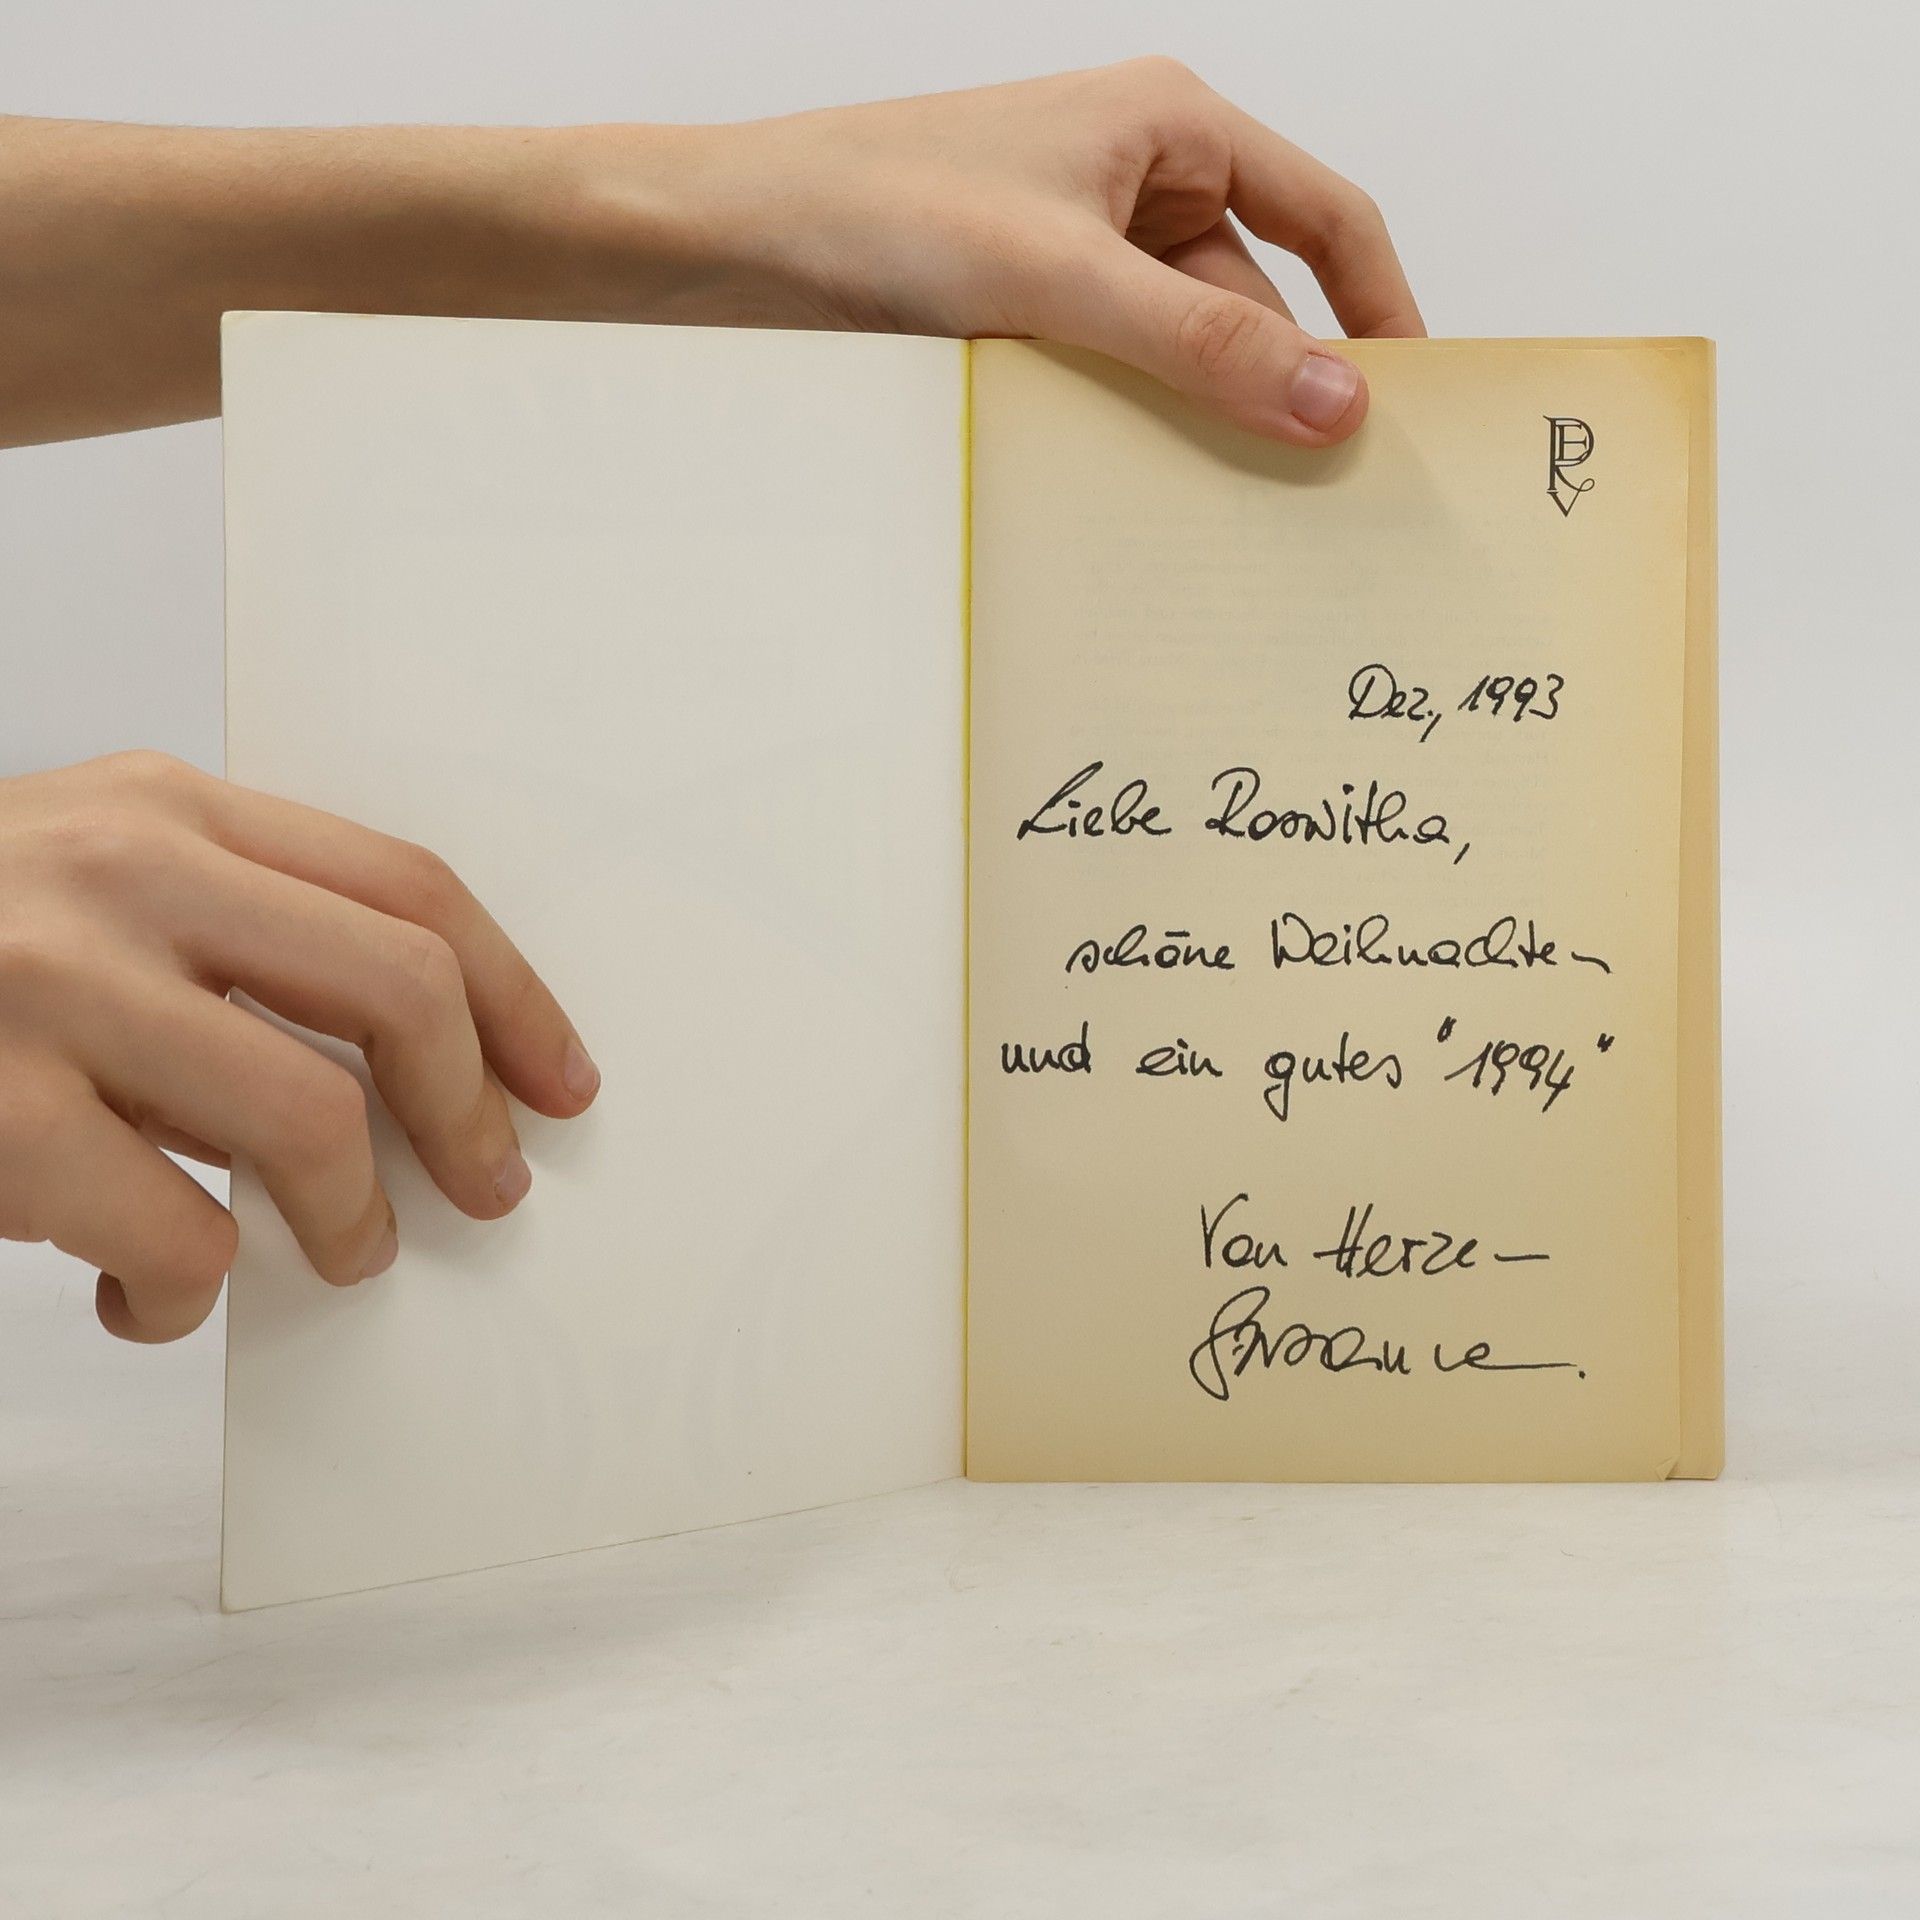 Dez., 1993
Liebe Roswitha,
schöne Weihnachten
und ein gutes "1994"
Von Herzen